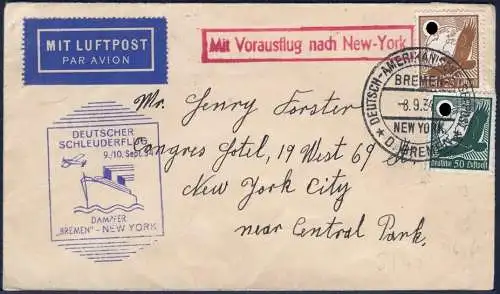 MIT LUFTPOST
PAR AVION
Mit Vorausflug nach New-York
DEUTSCH-AMERIKANISCHE
BREMEN
-8.9.34
NEW YORK
D. BREMEN
Deutsche 50 Luftpost
DEUTSCHER
SCHLEUDERFLUG
9./10. Sept. 34
DAMPFER
"BREMEN" - NEW YORK
Mr. Henry Forster
Congres Hotel, 19 West 69
New York City
near Central Park.